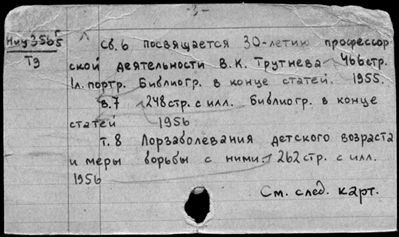 -3-
Сб.6 посвящается 30-летию профессор
ской деятельности В.К. Трутнева 466стр.
1л. портр. Библиогр. в конце статей. 1955.
в.7 248стр. с илл. Библиогр. в конце
статей 1956
т.8 Лорзаболевания детского возраста
и меры борьбы с ними. 262стр. с илл.
1956
См. след. карт.